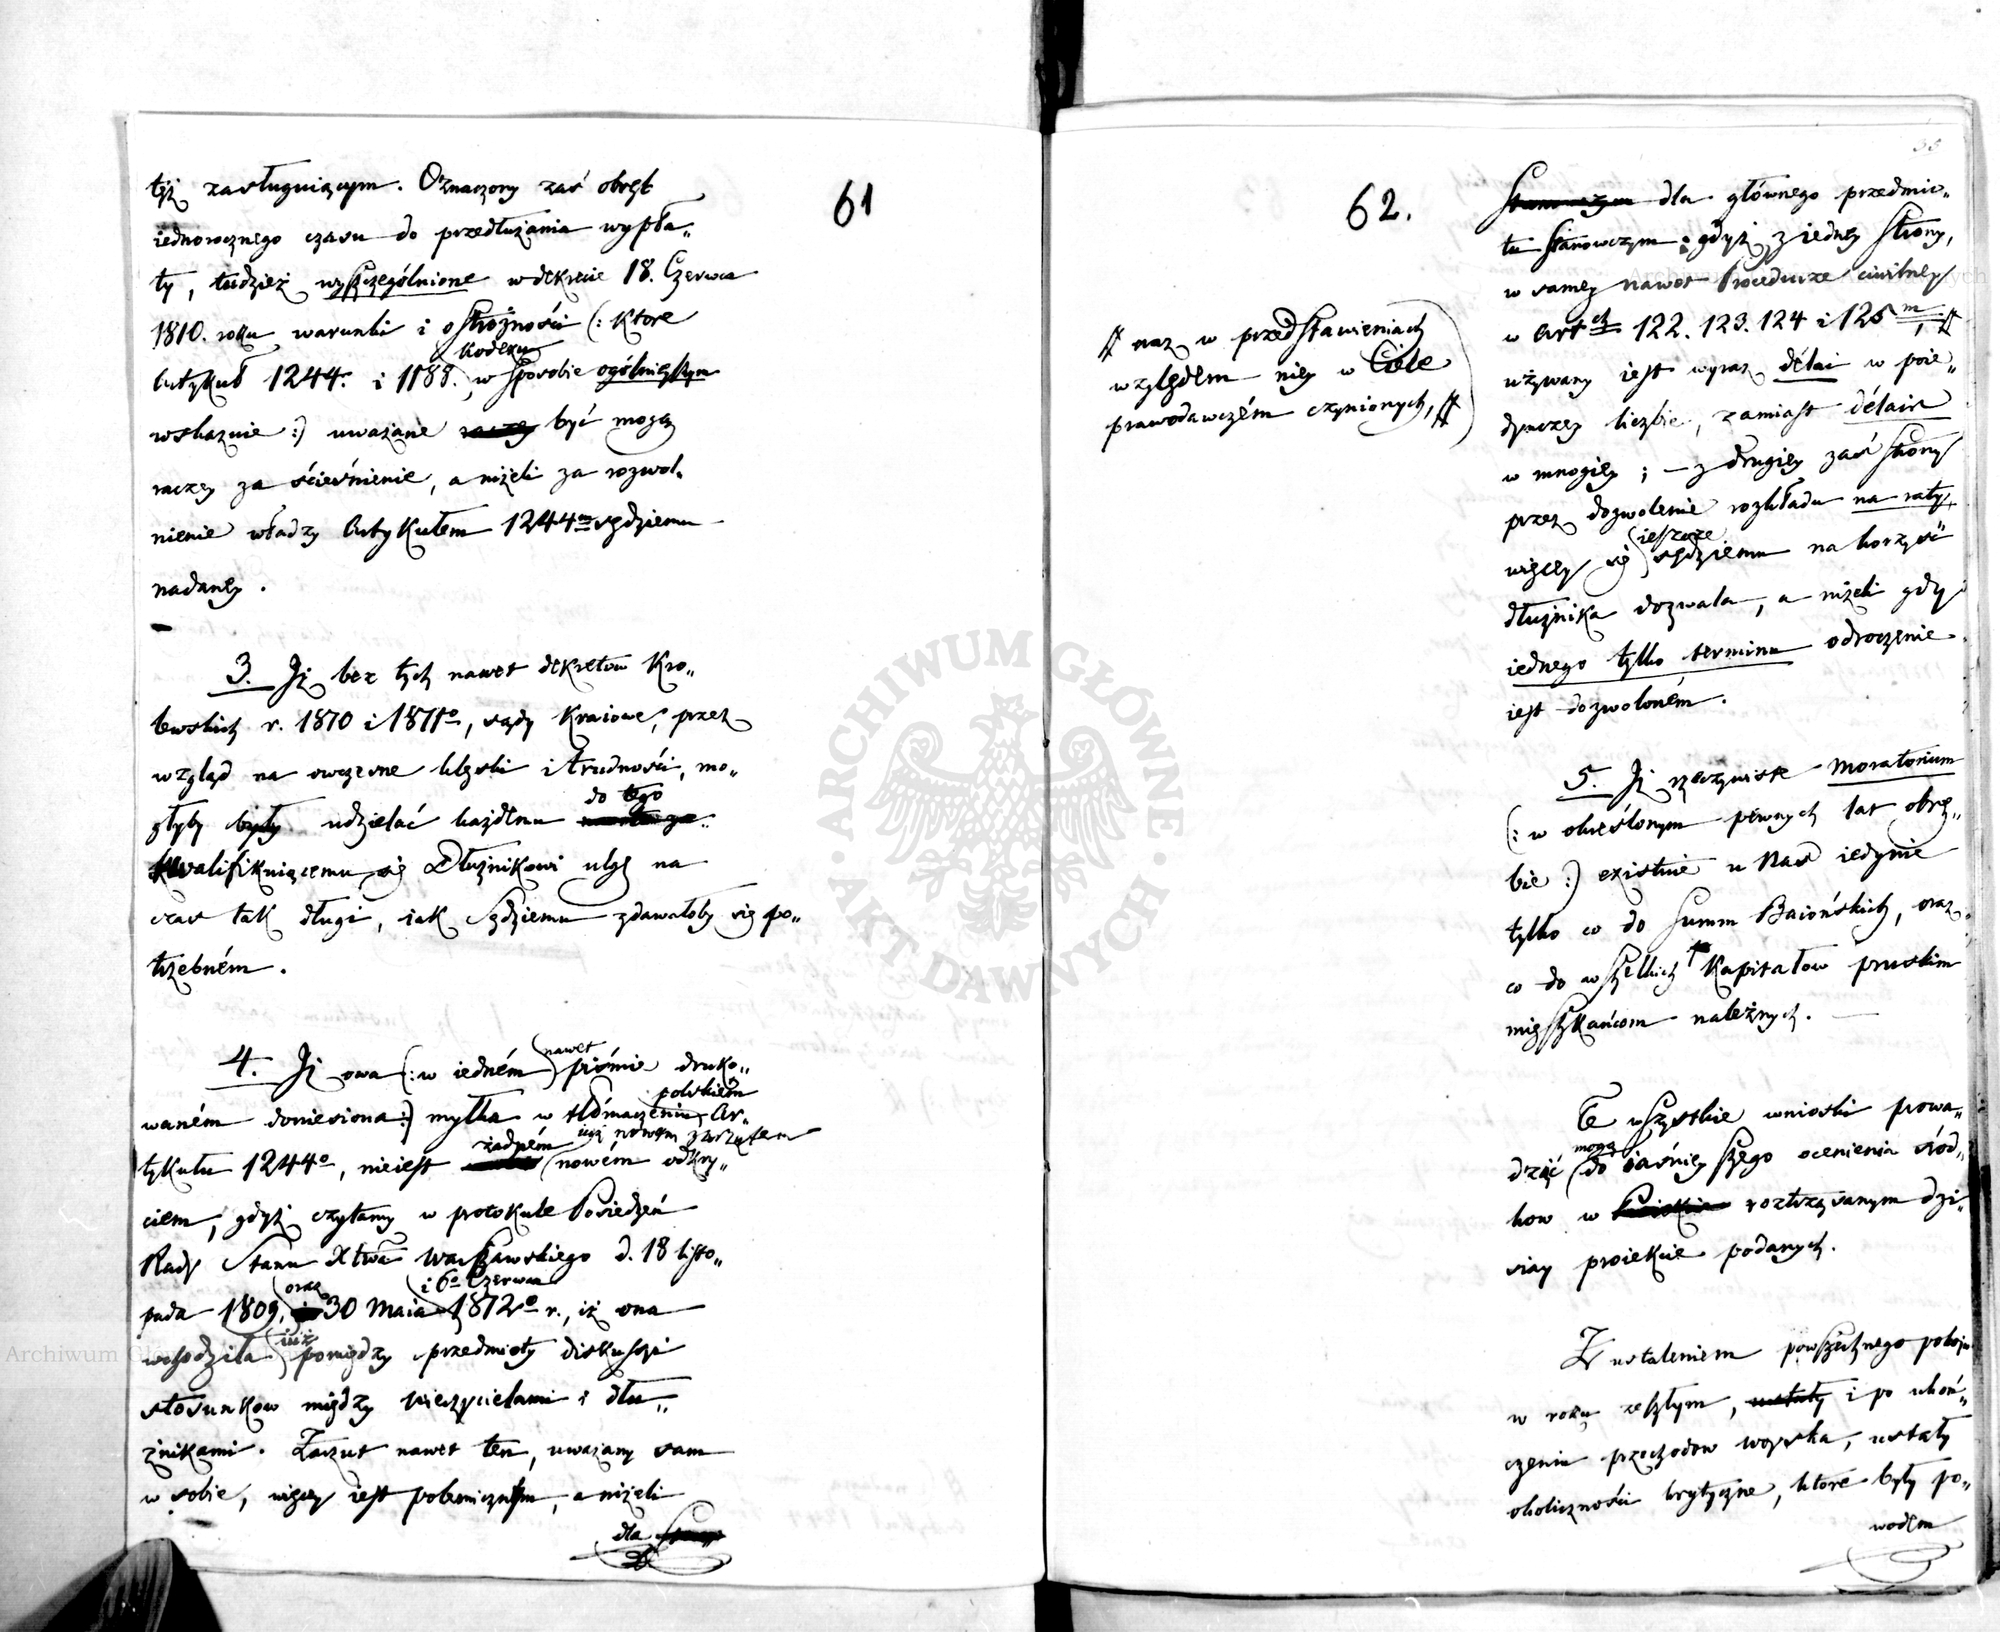 61
téj zasługuiącym. Oznaczony zaś obręb
iednorocznego czasu do przedłużania wypła„
ty, tudzież wyszczególnione w dekrecie 18. Czerwca
1810. roku warunki i ostrożności (: które
Kodexu
Artykuł 1244. i 1188., w sposobie ogólnieyszym
wskazuie :) uważane być mogą
raczey za ścieśnienie, a niżeli za rozwol„
nienie władzy Artykułem 1244m sędziemu
nadaney.
3. Iż bez tych nawet dekretów Kro„
lewskich r. 1810 i 1811o, sądy Kraiowe, przez
wzgląd na owczesne klęski i trudności, mo„
do tego
głyby były udzielać każdemu
kwalifikuiącemu się Dłużnikowi ulgę na
czas tak długi, iak Sędziemu zdawałoby się po„
trzebném.
nawet
4. Iż owa (: w iedném piśmie druko„
polskiém
waném doniesiona :) myłka w tłómaczeniu Ar„
żadném iuż nowem zarzutem
tykułu 1244o, nieiest nowém odkry„
ciem, gdyż czytamy w protokule Posiedzeń
Rady Stanu Xtwa Warszawskiego d. 18 listo„
oraz i 6o Czerwca
pada 1809, 30 Maia 1812o r., iż ona
iuż
wchodziła pomiędzy przedmioty diskussji
stosunkow między wierzycielami i dłu„
żnikami. Zarzut nawet ten, uważany sam
w sobie, więcey iest polemicznym, a niżeli
dla
62.
# raz w przedstawieniach
względem niey w Ciele
prawodawczém czynionych, #
dla głównego przedmio„
tu stanowczym; gdyż z iedney strony,
w samey nawet Procedurze ciwilney
w Artch 122. 123. 124 i 125m, #
używany iest wyraz délai w poie„
dynczey liczbie, zamiast délais
w mnogiey; – z drugiey zaś strony
przez dozwolenie rozkładu na raty,
ieszcze
więcey się sędziemu na korzyść
dłużnika dozwala, a niżeli gdy
iednego tylko terminu odroczenie
iest dozwoloném.
5. Iż rzeczywiste moratorium
(: w określonym pewnych lat obrę„
bie :) existuie u Nas iedynie
tylko co do Summ Baiońskich, oraz
co do wszelkich Kapitałow pruskim
mięszkańcom należnych. –
Te wszystkie wnioski prowa„
mogą
dzić do iaśnieyszego ocenienia środ„
kow w roztrząsanym dzi„
siay proiekcie podanych.
Z ustaleniem powszechnego pokoju
w roku zeszłym, ustały i po ukoń„
czeniu przechodow woyska, ustały
okoliczności krytyczne, które były po„
wodem
ARCHIWUM GŁÓWNE
AKT DAWNYCH